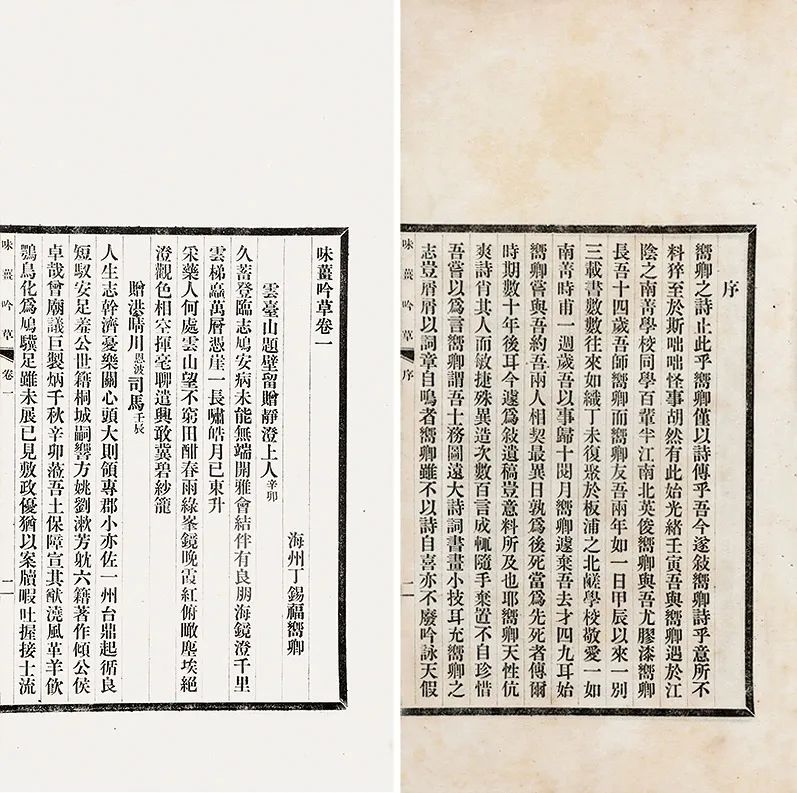 序
嚮卿之詩止此乎嚮卿僅以詩傳乎吾今遂敍嚮卿詩乎意所不
料猝至於斯咄咄怪事胡然有此始光緒壬寅吾與嚮卿遇於江
陰之南菁學校同學百輩半江南北英俊嚮卿與吾尤膠漆嚮卿
長吾十四歲吾師嚮卿而嚮卿友吾兩年如一日甲辰以來一別
三載書數數往來如織丁未復聚於板浦之北鹺學校敬愛一如
南菁時甫一週歲吾以事歸十閱月嚮卿遽棄吾去才四九耳始
嚮卿嘗與吾約吾兩人相契最異日孰爲後死當爲先死者傳爾
時期數十年後耳今遽爲敍遺稿豈意料所及也耶嚮卿天性伉
爽詩肖其人而敏捷殊異造次數百言成輒隨手棄置不自珍惜
吾嘗以爲言嚮卿謂吾士務圖遠大詩詞書畫小技耳充嚮卿之
志豈屑屑以詞章自鳴者嚮卿雖不以詩自喜亦不廢吟詠天假
味薑吟草 序
味薑吟草卷一
海州丁錫福嚮卿
雲臺山題壁留贈靜澄上人辛卯
久蓄登臨志鳩安病未能無端開雅會結伴有良朋海鏡澄千里
雲梯驫萬層憑崖一長嘯皓月已東升
采藥人何處雲山望不窮田酣春雨綠峯鏡晚霞紅俯瞰塵埃絕
澄觀色相空揮毫聊遣興敢冀碧紗籠
贈洪晴川恩波司馬壬辰
人生志幹濟憂樂關心頭大則領專郡小亦佐一州台鼎起循良
短馭安足羞公世籍桐城嗣響方姚劉漱芳躭六籍著作傾公侯
卓哉曾廟議巨製炳千秋辛卯蒞吾土保障宣其猷澆風革羊飲
鶚鳥化爲鳩驥足雖未展已見敷政優猶以案牘暇吐握接士流
味薑吟草 卷一